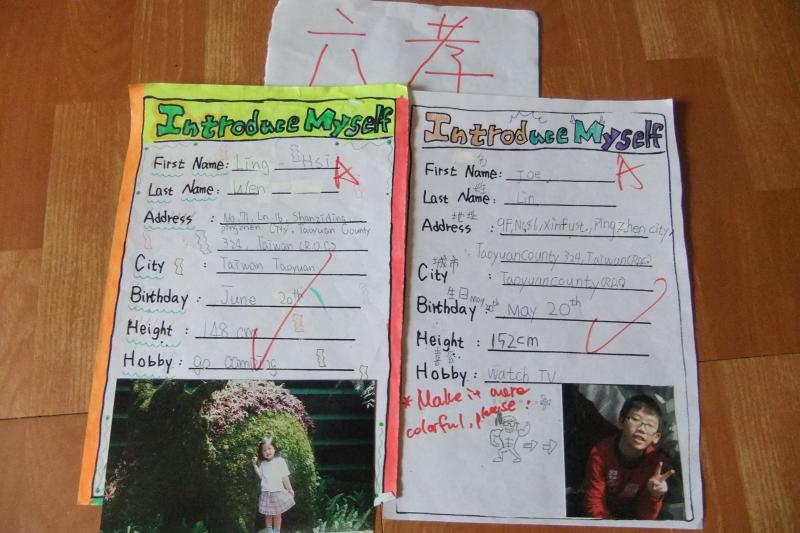 六孝
Introduce Myself
First Name: Ling Hsi
A
Last Name: Wen
Address : No.71, Ln.16, Shanziding,
pingzhen City, Taoyuan County
324, Taiwan (R.O.C.)
City : Taiwan Taoyuan
Birthday : June 20th
Height : 148 cm
Hobby : go camping
Introduce Myself
First Name: Joe
A
Last Name: Lin
姓
地址
Address : 9F, No.56, Xinfust., PingZhen city,
Taoyuan County 324, Taiwan (R.O.C)
城市
City : Taoyuan county (R.O.C)
生日
Birthday : May 20th
Height : 152cm
Hobby: Watch TV
* Make it more
colorful, please!